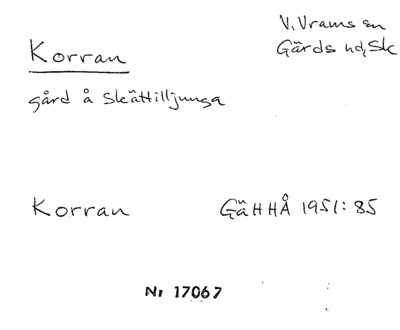 Korran
V. Vrams sn
Gärds hd, Sk
gård å Skättilljunga
Korran GäHHÅ 1951: 85
Nr 17067